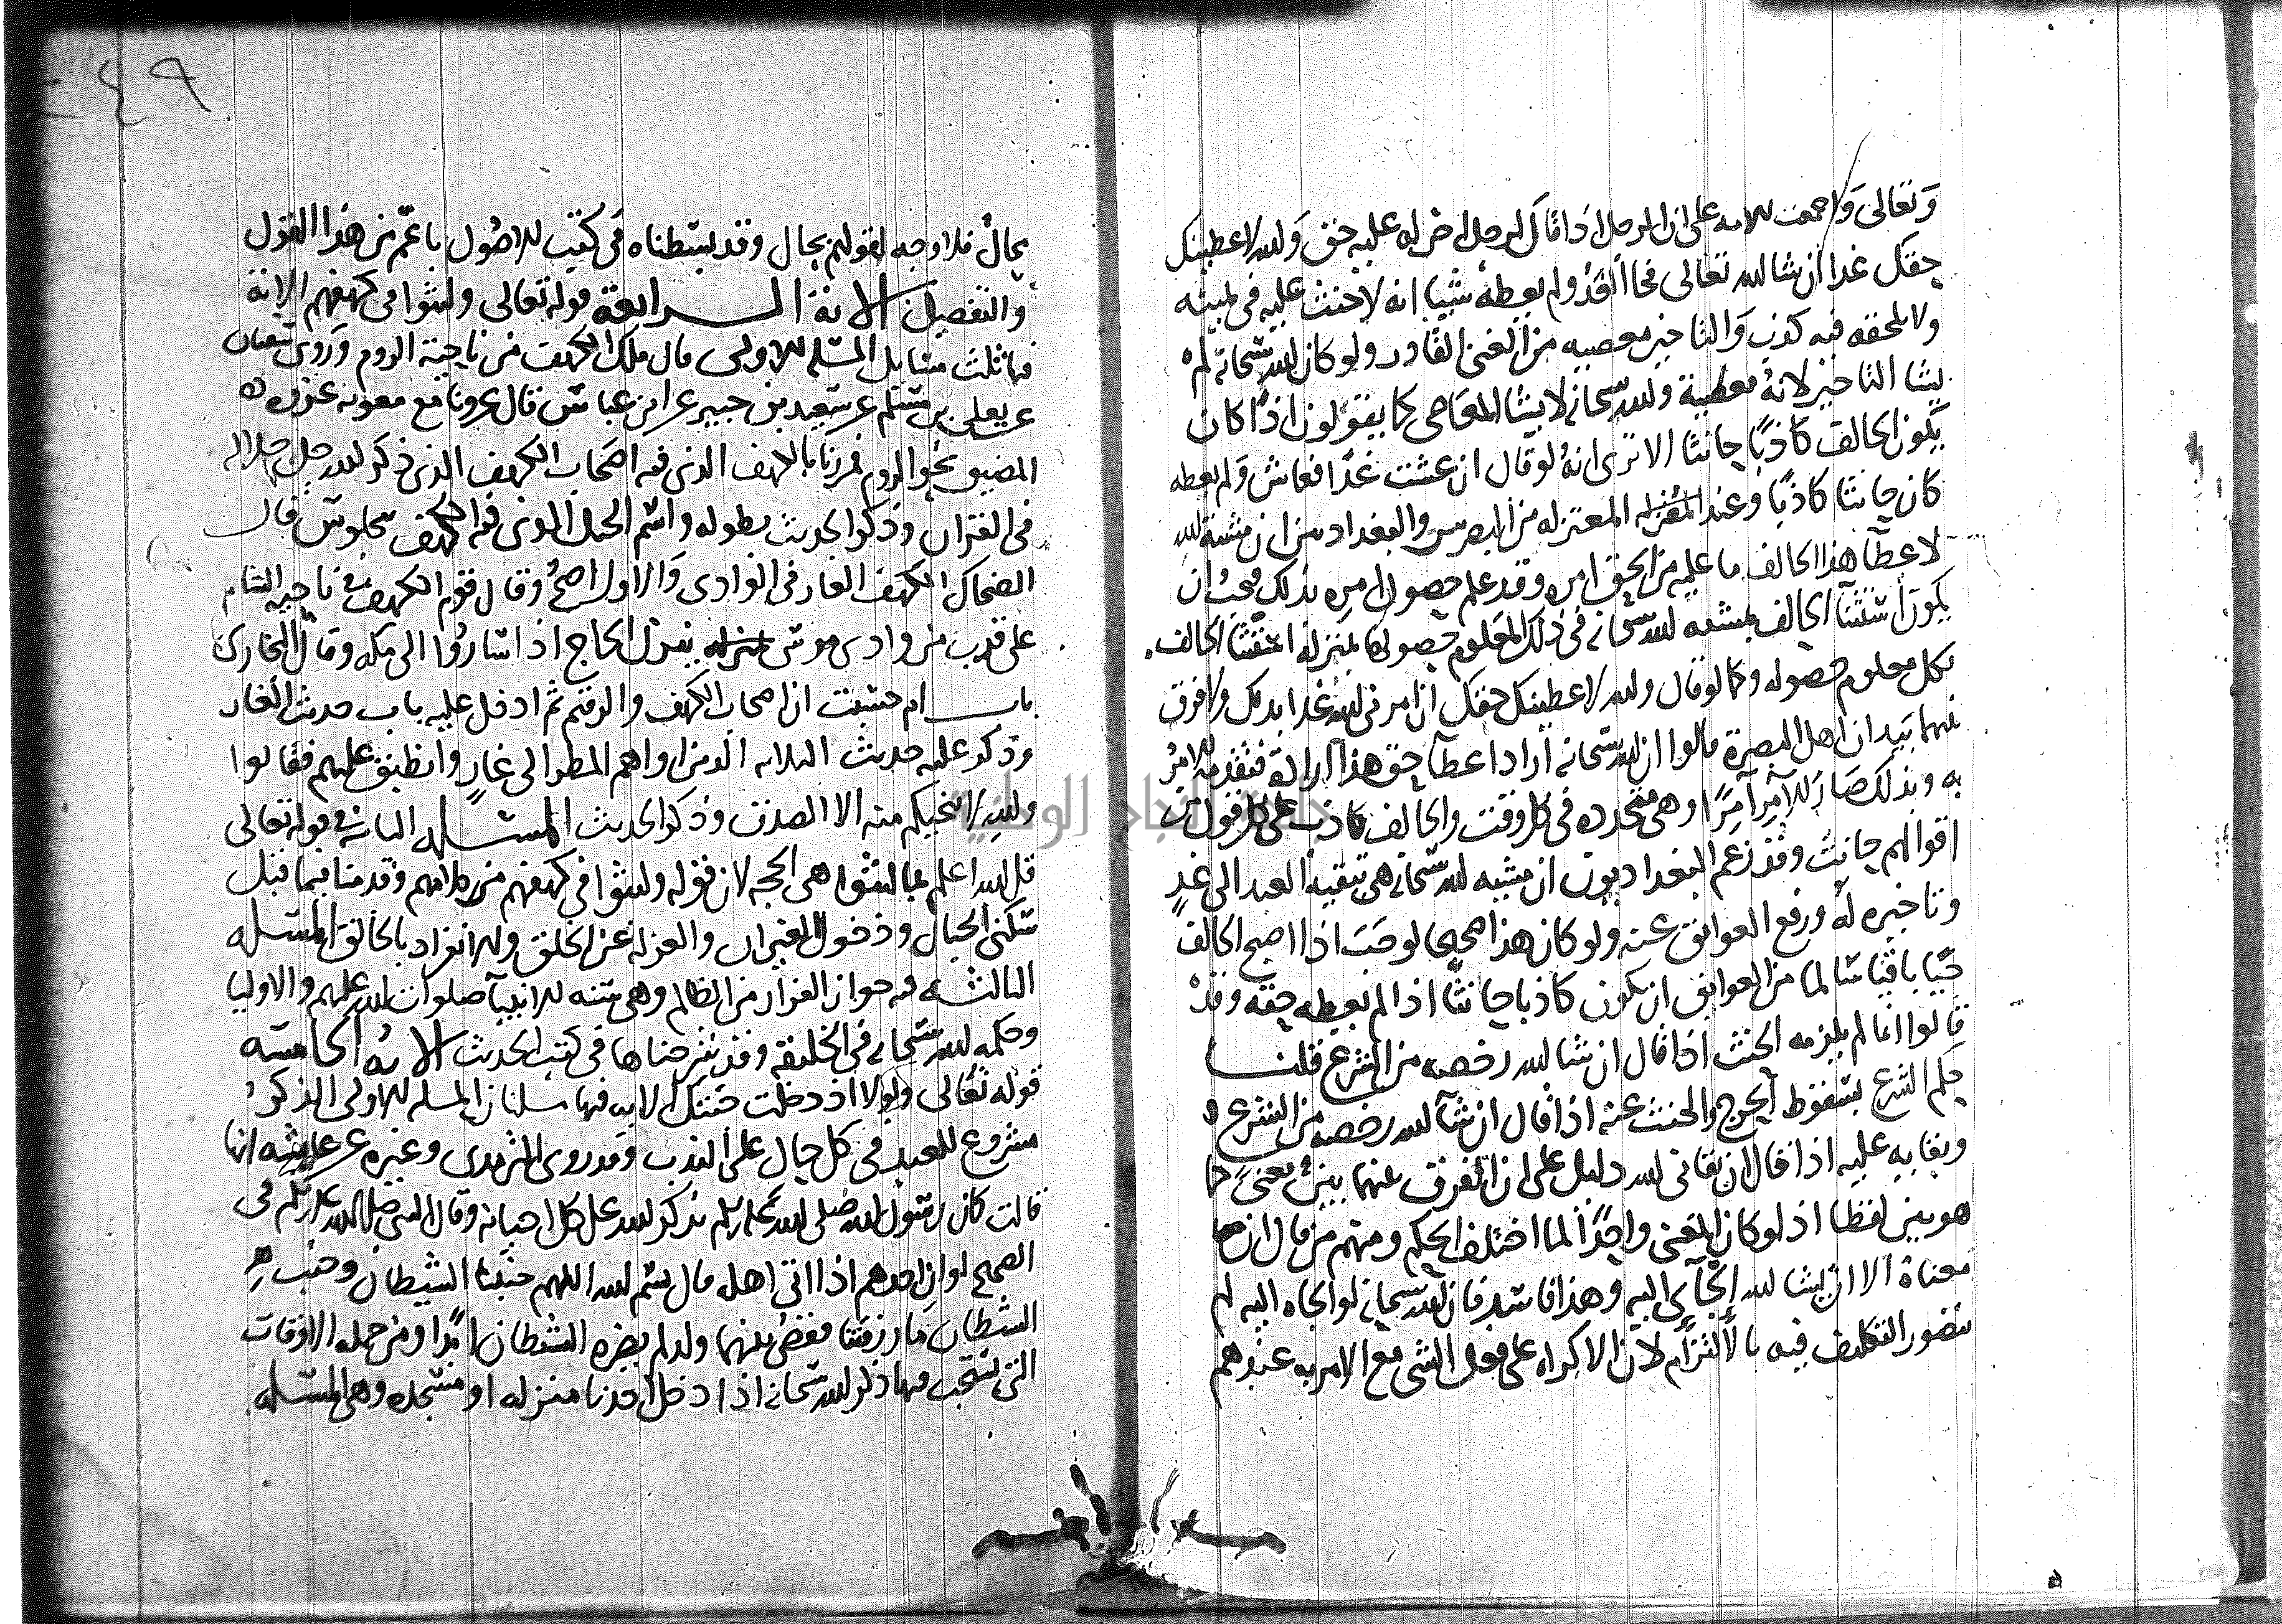 وتعالى واجمعت الامة على ان الرجل اذا قال لرجل اخر له عليه حق والله لاعطينك
حقك غدا ان شا الله تعالى فجا الغد ولم يعطه شيا انه لا حنث عليه في يمينه
ولا يلحقه فيه كذب والتاخير معصيه من الغني القادر ولو كان الله سبحانه لم
يشا التاخير لانه معصية والله سبحانه لا يشا المعاصي كما يقولون اذا كان
يكون الحالف كاذبا حانثا الا ترى انه لو قال ان عشت غدا فعاش ولم يعطه
كان حانثا كاذبا وعند المعتزله من البصريين والبغداديين ان مشية الله
لاعطا هذا الحالف ما عليه من الحق امره وقد علم حصول امره بذلك فيجب ان
يكون استثنا الحالف بمشيه الله سبحانه في ذلك المعلوم حصولها بمنزلة استثنا الحالف
بكل معلوم حصوله وكما لو قال والله لاعطينك حقك ان امرني الله غدا بذلك ولا فرق
بينهما بيد ان اهل البصرة قالوا ان الله سبحانه اراد اعطا حق هذا ارادة متقدمة للامر
به وبذلك صار الامر امرا وهي متجدده في كل وقت والحالف كاذب على كل قول من
اقوالهم حانث وقد زعم البغداديون ان مشيه الله سبحانه هي تبقية العبد الى غد
وتاخيره له ورفع العوائق عنه ولو كان هذا صحيحا لوجب اذا اصبح الحالف
حيا باقيا سالما من العوايق ان يكون كاذبا حانثا اذا لم يعطه حقه وقد
قالوا انما لم يلزمه الحنث اذا قال ان شا الله رخصه من الشرع قلنا
حكم الشرع بسقوط الحرج والحنث عنه اذا قال ان شآ الله رخصه من الشرع
وبقايه عليه اذا قال ان بقاني الله دليل على ان الفرق بينهما بين معنى كما
هو بين لفظا اذ لو كان المعنى واحدا لما اختلف الحكم ومنهم من قال ان
معناه الا ان يشا الله الجآئي اليه وهذا فاسد فان الله سبحانه لو الجاه اليه لم
يتصور التكليف فيه بالالتزام لان الاكراه على فعل الشي مع الامر به عندهم
٢٤٩
محال فلا وجه لقولهم بحال وقد بسطناه في كتب الاصول باعم من هذا القول
والتفصيل الاية الرابعة قوله تعالى ولبثوا في كهفهم الاية
فيها ثلث مسايل المسلة الاولى قال ملك الكهف من ناحية الروم وروى سفيان
عن يعلى بن مسلم عن سعيد بن جبير عن ابن عباس قال غزونا مع معوية غزوة
المضيق نحو الروم فمررنا بالكهف الذي فيه اصحاب الكهف الذي ذكر الله جل جلاله
في القران وذكر الحديث بطوله واسم الجبل الذي فيه الكهف بنجلوس قال
الضحاك الكهف الغار في الوادي والاول اصح وقال قوم الكهف في ناحيه الشام
على قرب من وادي موسى ينزله الحاج اذا ساروا الى مكه وقال البخاري
باب ام حسبت ان اصحاب الكهف والرقيم ثم ادخل عليه باب حديث الغار
وذكر عليه حديث الثلاثه الذين اواهم المطر الى غار وانطبق عليهم فقالوا
والله لا ينجيكم منه الا الصدق وذكر الحديث المسلة الثانية في قوله تعالى
قل الله اعلم بما لبثوا هي الحجه لان قوله ولبثوا في كهفهم من كلامهم وقدمنا فيما قبل
سكنى الجبال ودخول الغيران والعزله عن الخلق والانفراد بالخالق المسله
الثالثه فيه جواز الفرار من الظالم وهي سنه الانبيآ صلوات الله عليهم والاوليا
وحكمه الله سبحانه في الخليقة وقد شرحناها في كتب الحديث الاية الخامسة
قوله تعالى ولولا اذ دخلت جنتك الايه فيها مسلتان المسله الاولى الذكر
مشروع للعبد في كل حال على الندب وقد روى الترمذي وغيره عن عايشه انها
قالت كان رسول الله صلى الله عليه وسلم يذكر الله على كل احيانه وقال النبي صلى الله عليه وسلم في
الصحيح لو ان احدهم اذا اتى اهله قال بسم الله اللهم جنبنا الشيطان وجنب
الشيطان ما رزقتنا فقضي بينهما ولد لم يضره الشيطان ابدا ومن جمله الاوقات
التي يستحب فيها ذكر الله سبحانه اذا دخل احدنا منزله او مسجده وهي المسله